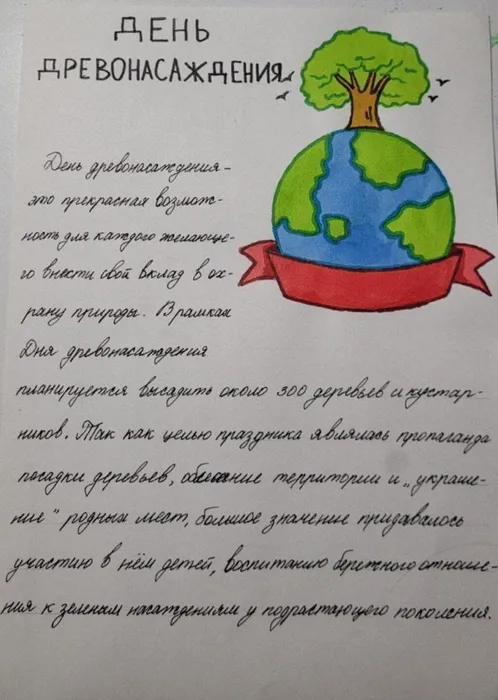 ДЕНЬ
ДРЕВОНАСАЖДЕНИЯ
День древонасаждения-
это прекрасная возмож-
ность для каждого желающе-
го внести свой вклад в ох-
рану природы. В рамках
Дня древонасаждения
планируется высадить около 300 деревьев и кустар-
ников. Так как целью праздника являлась пропаганда
посадки деревьев, территории и „украше-
ние" родных мест, большое значение придавалось
участию в нём детей, воспитанию бережного отноше-
ния к зеленым насаждениям у подрастающего поколения.